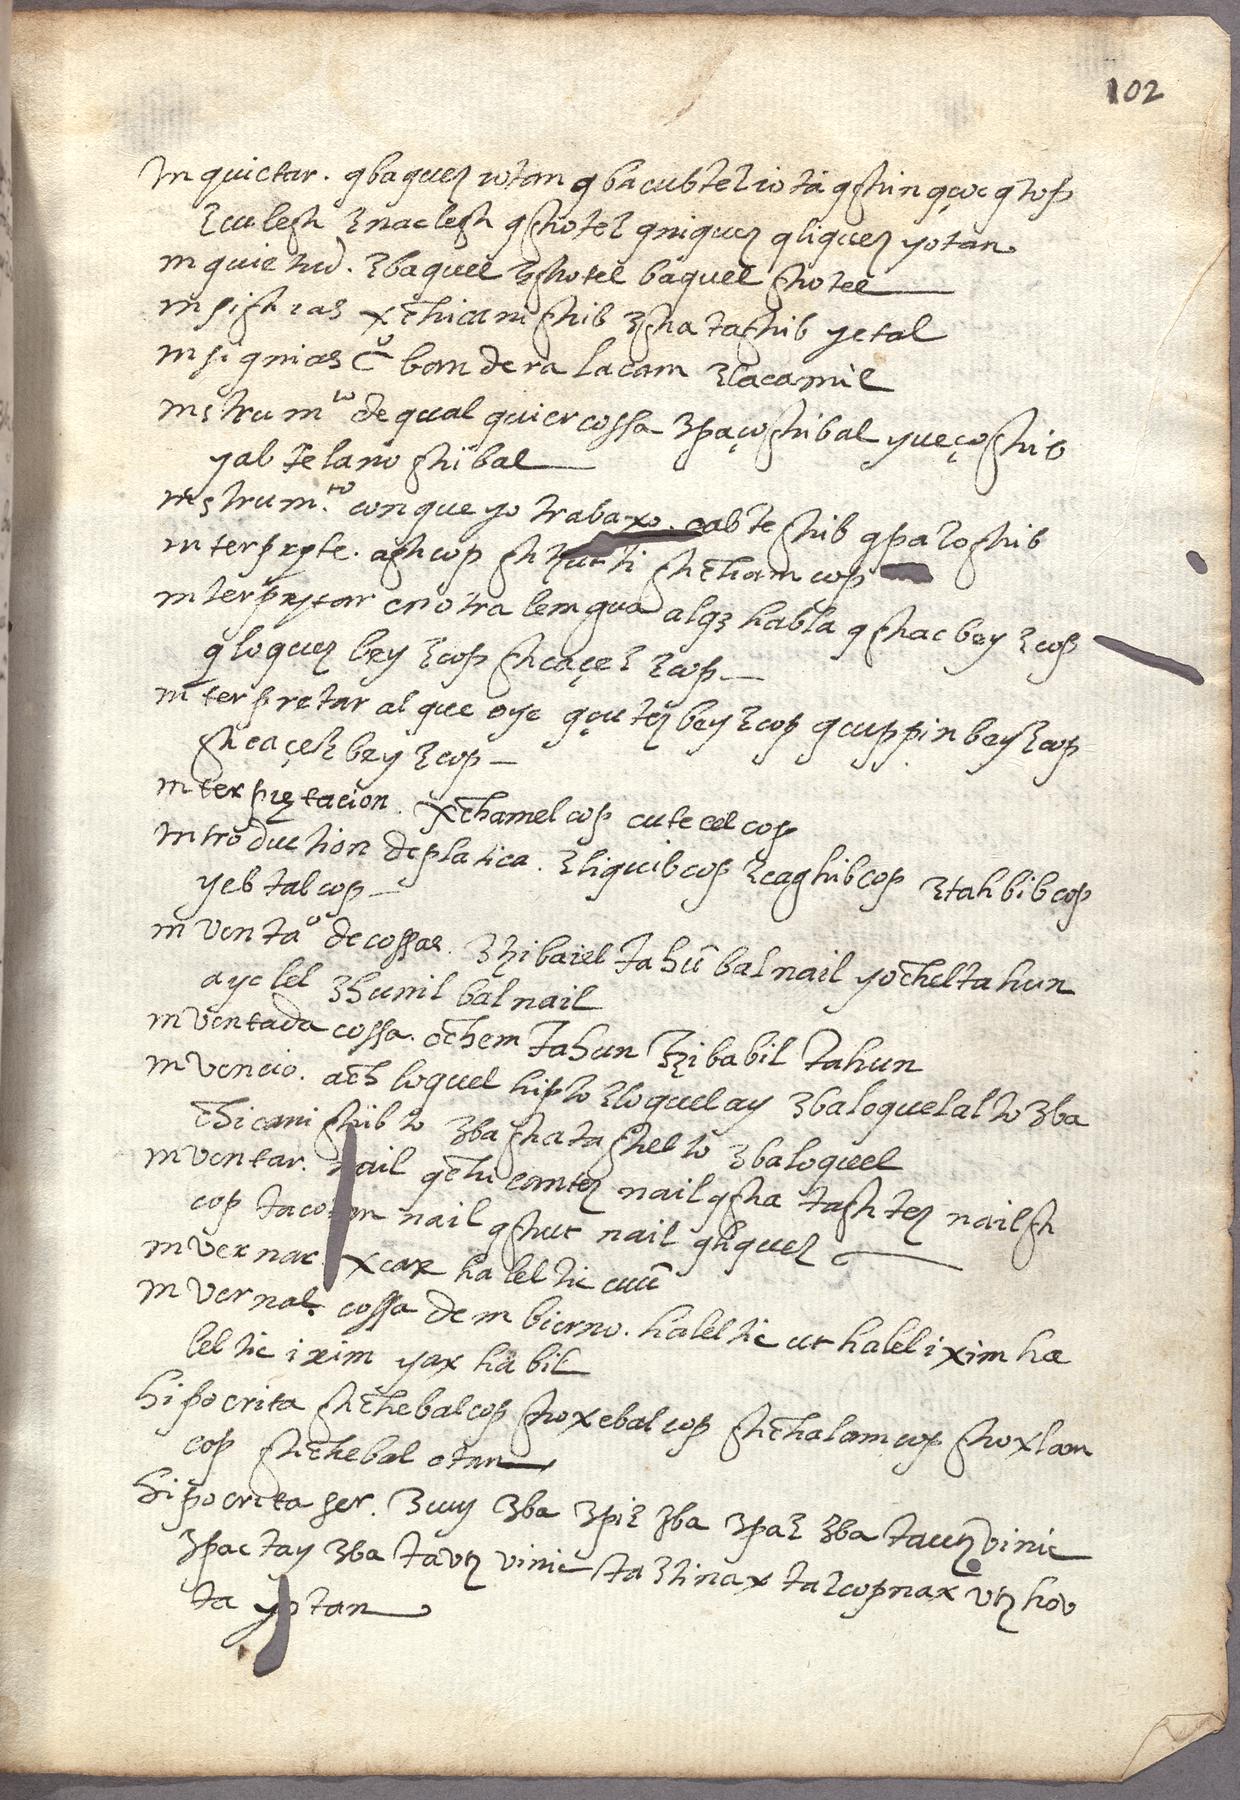 102
Inquietar. qbaquez yotan qbacubtez iotā qshinqçoc qtop
zculesh znaclesh qshotez qniquez qliquez yotan
inquietud. zbaquel zshotel baquel shotel
insistias xchicanshib zshatashib yetal
insignias cō bandera lacam zlacamil
instrumto de qual quier cossa zpaçoshibal yueçoshib
yabtelanoshibal
instrumto con que yo trabaxo. cabteshib qpazoshib
interprete. ashcop shchamcop
interpretar en otra lengua alqe habla qshac bey zcop
qloquez bey zcop shcaçez zcop
interpretar al que oye qçutez bey zcop qcuppin bey zcop
shcaçesh bey zcop
interpretacion. xchamel cop cuteel cop
introduction de platica. zliquibcop zcaghibcop ztahbibcop
yebtalcop
inventao de cossas. ztzibaiel tahū balnail yocheltahun
ayelel zhunil balnail
inventada cossa. ochem tahun tzibabil tahun
invencio. ach loquel hipto zloquelay zbaloquelal to zba
chicanishib to zbashatashel to zbaloquel
inventar. nail qchicantez nail qsha tashtez nail sh
cop tacotan nail qshut nail qliquez
invernar. xcax halel tic cuū
invernal cossa de inbierno. halel tic ut halel ixim ha
lel tic ixim yax habil
hipocrita shchebalcop shoxebalcop shchalamcop shoxlam
cop shchebal otan
hipocrita ser. zcuy zba zpiz zba zpaz zba tautz vinic
zpactay zba tavtz vinic taztinax tazcopnax vtz hov
ta yotan